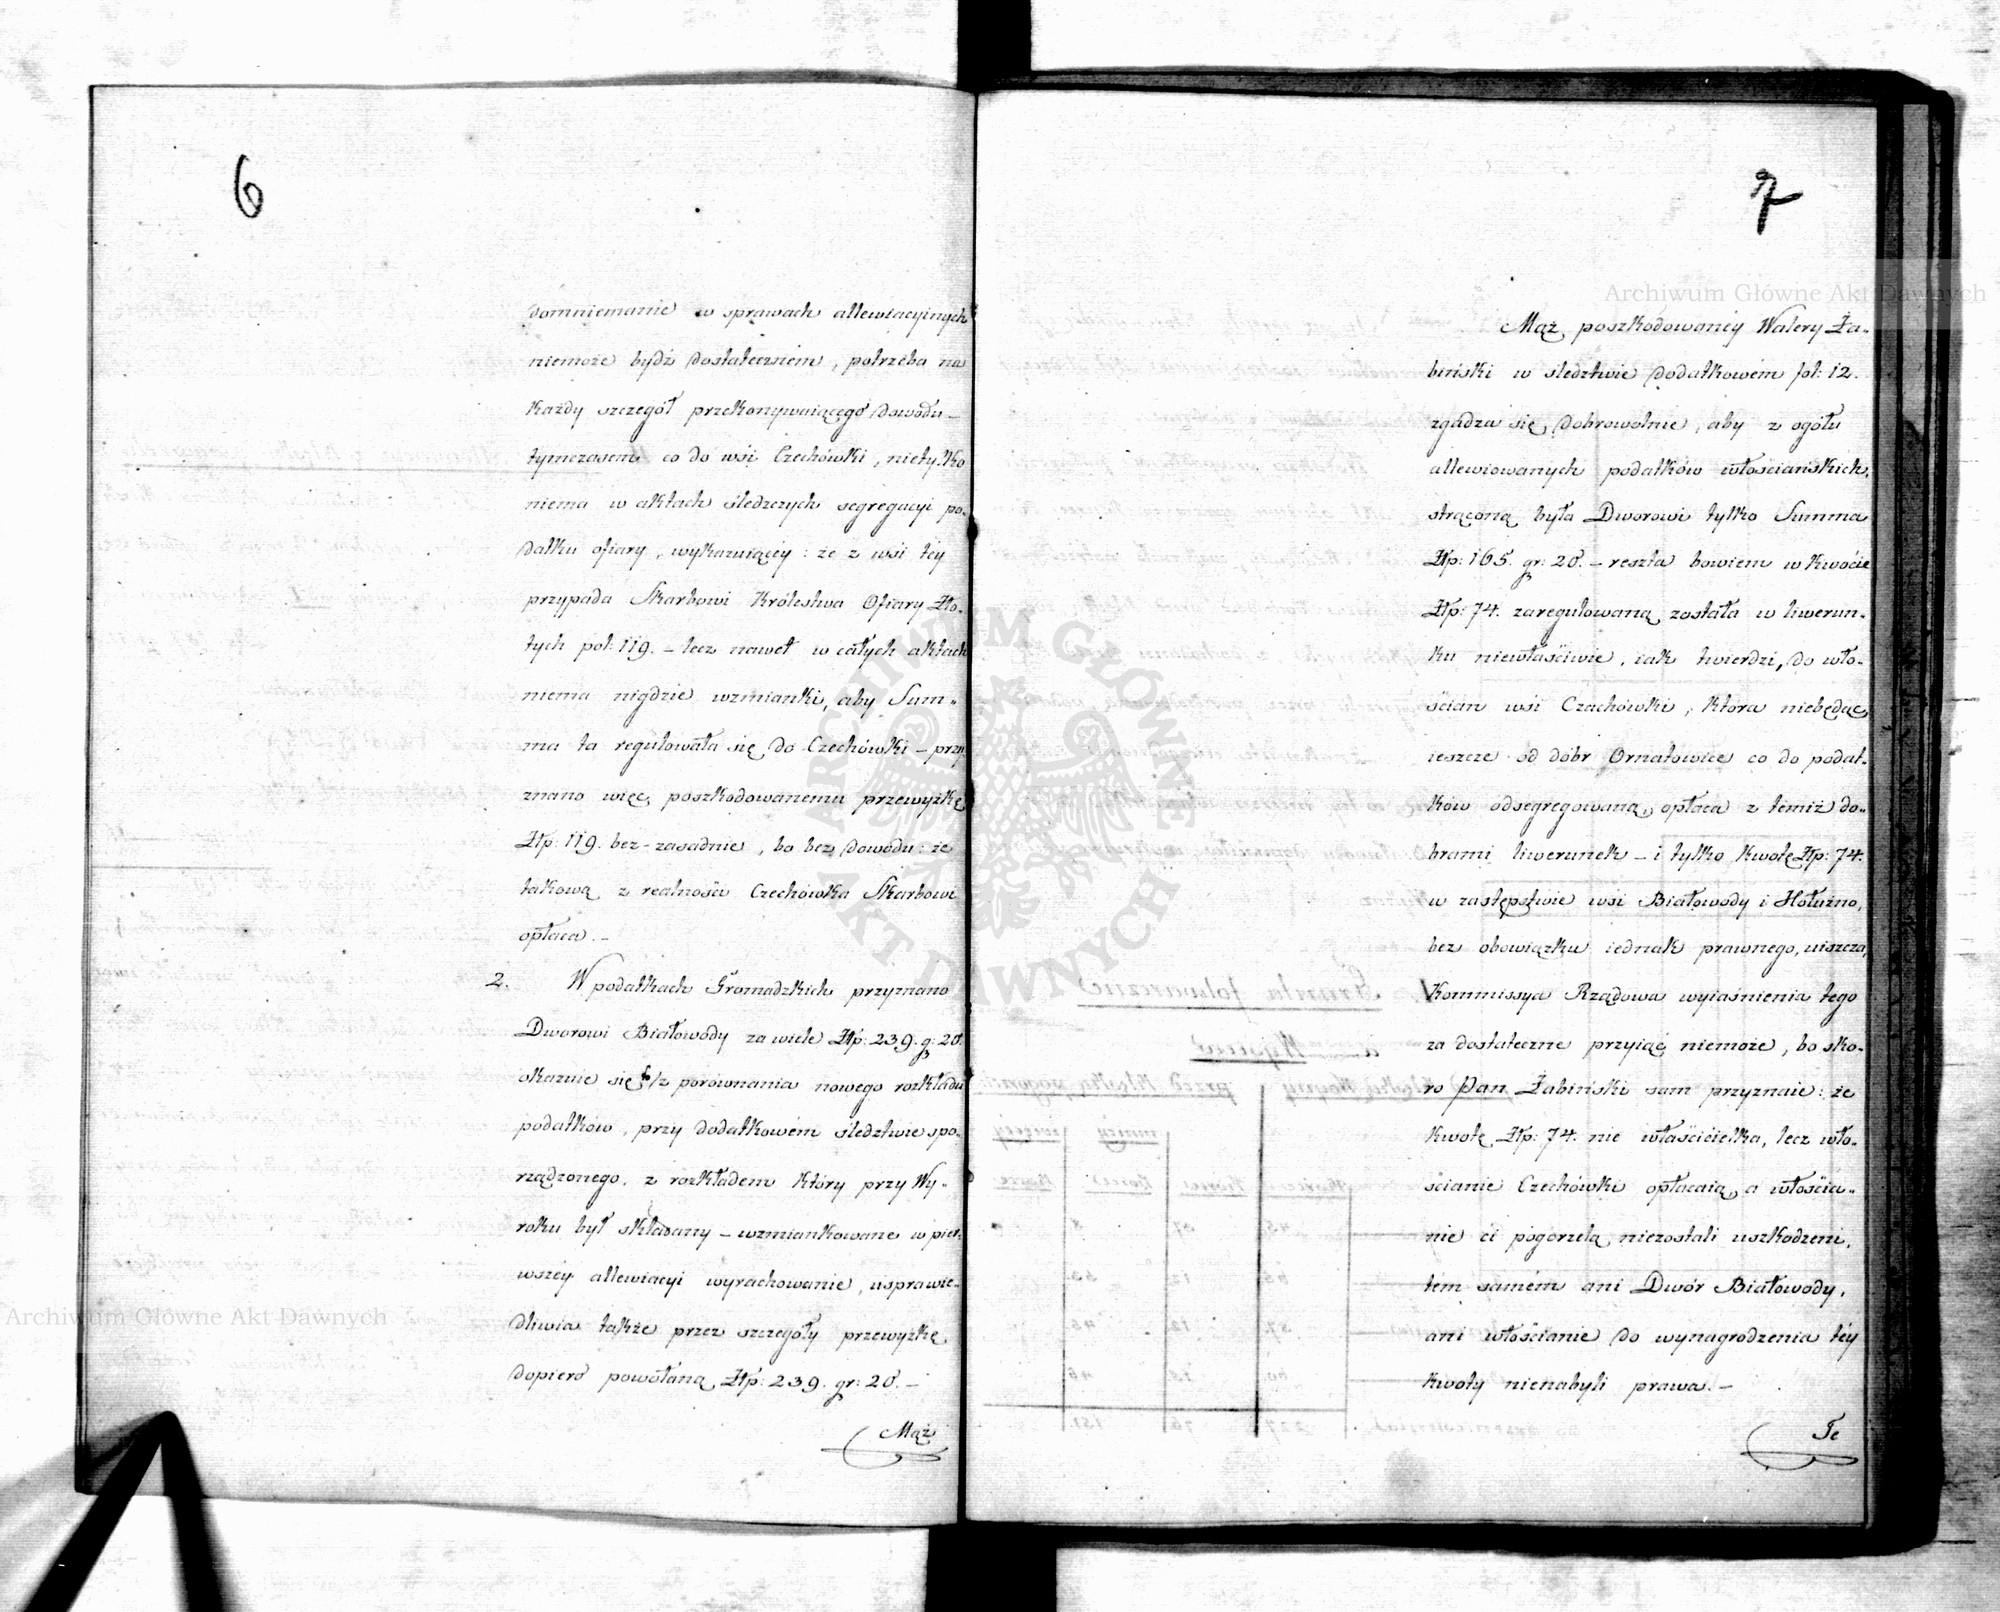 6
domniemanie w sprawach allewiacyinych
niemoże bydź dostatecznem, potrzeba na
każdy szczegół przekonywaiącego dowodu –
tymczasem co do wsi Czechówki, nietylko
niema w aktach śledczych segregacyi po„
datku ofiary, wykazuiącéy: że z wsi téy
przypada Skarbowi Królestwa Ofiary Zło„
tych pol: 119. – lecz nawet w całych aktach
niema nigdzie wzmianki, aby Sum„
ma ta regulowała się do Czechówki – przy„
znano więc poszkodowanemu przewyżkę
Złp: 119. bez-zasadnie, bo bez dowodu: że
takową z realności Czechówka Skarbowi
opłaca. –
2. W podatkach Gromadzkich przyznano
Dworowi Białowody za wiele Złp: 239. g: 20.
okazuie się to z porównania nowego rozkładu
podatków, przy dodatkowém śledztwie spo„
rządzonego, z rozkładem który przy Wy„
roku był składany – wzmiankowane w pier„
wszéy allewiacyi wyrachowanie, usprawie„
dliwia także przez szczegóły przewyżkę
dopiero powołaną Złp: 239. gr: 20. –
Mąż
7
Mąż poszkodowanéy Walery Ża„
biński w śledztwie dodatkowém fol: 12.
zgadza się dobrowolnie, aby z ogółu
allewiowanych podatków włościańskich,
strąconą była Dworowi tylko Summa
Złp: 165. gr: 20. – reszta bowiem w kwocie
Złp: 74. zaregulowaną została w liwerun„
ku niewłaściwie, iak twierdzi, do wło„
ścian wsi Czachówki, która niebędąc
ieszcze od dóbr Ornatowice co do podat„
ków odsegregowaną, opłaca z temiż do„
brami liwerunek – i tylko kwotę Złp: 74.
w zastępstwie wsi Białowody i Hołużno,
bez obowiązku iednak prawnego, uiszcza,
Kommissya Rządowa wyiaśnienia tego
za dostateczne przyiąć niemoże, bo sko„
ro Pan Żabiński sam przyznaie: że
kwotę Złp: 74. nie właścicielka, lecz wło„
ścianie Czechówki opłacaią, a włościa„
nie ci pogorzelą niezostali uszkodzeni,
tém samém ani Dwór Białowody,
ani włościanie do wynagrodzenia téy
kwoty nienabyli prawa. –
Te
Archiwum Główne Akt Dawnych
Archiwum Główne Akt Dawnych
ARCHIWUM GŁÓWNE AKT DAWNYCH